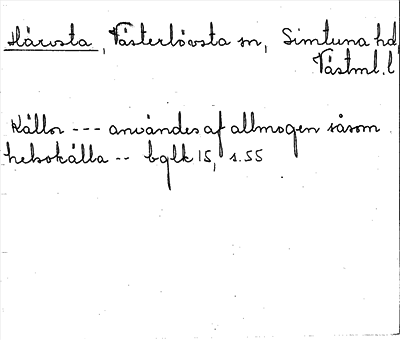 Härvsta, Västerlövsta sn, Simtuna hd,
Västml. l
Källor --- användes af allmogen såsom
helsokälla -- bglk 15, s. 55